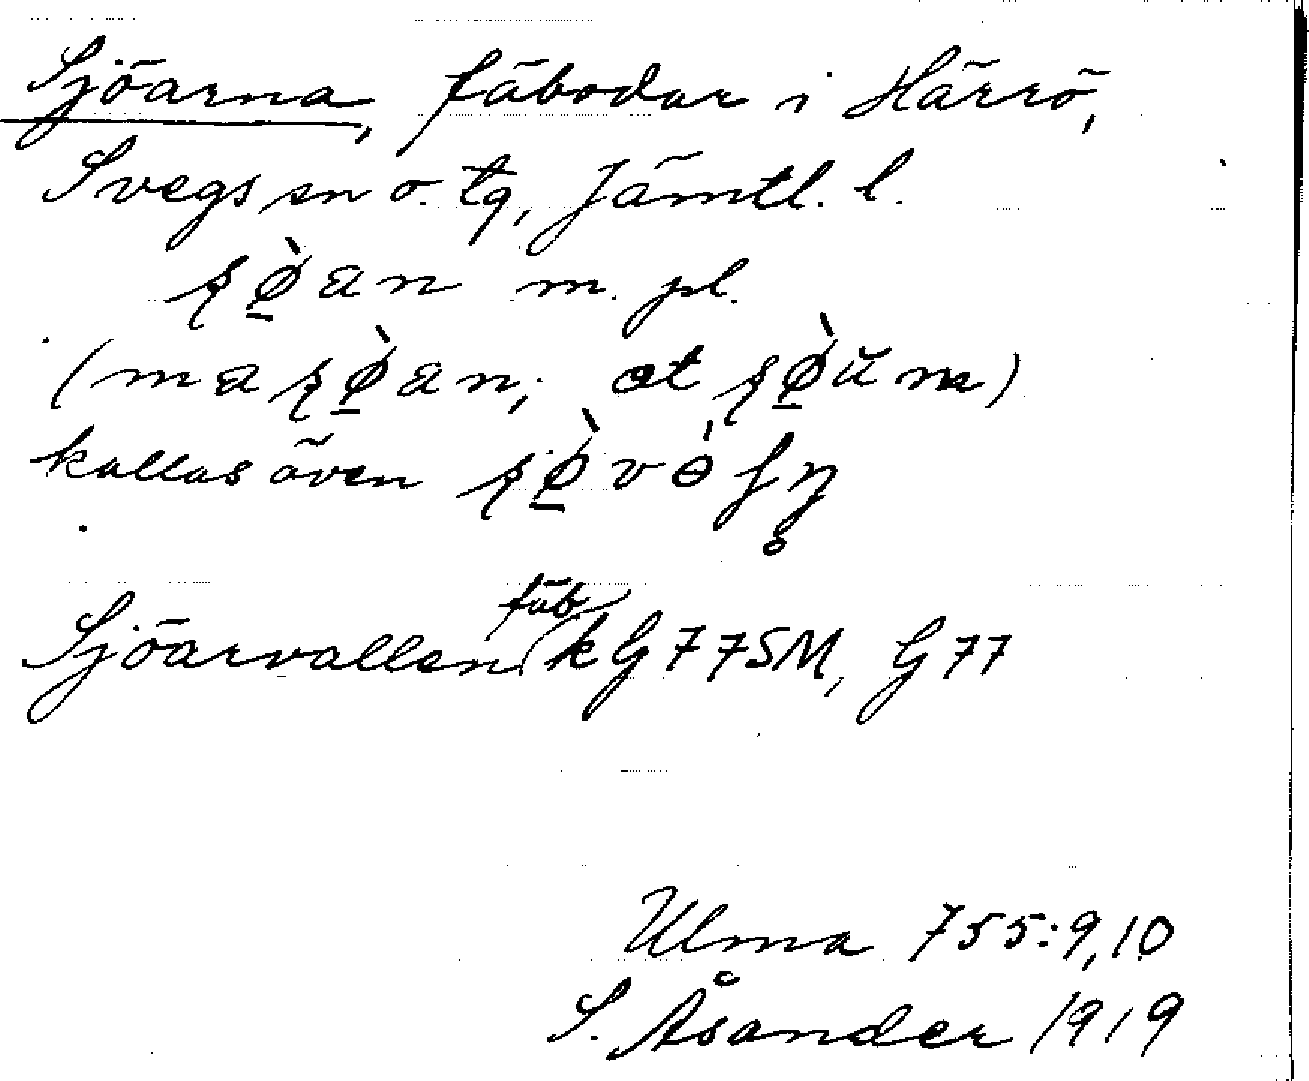 Sjöarna, fäbodar i Härrö,
Svegs sn o. tg, Jämtl. l.
ʂø̠̀an m. pl.
(ma ʂø̠̀an; at ʂø̠̀ŭm)
kallas även ʂø̠̀vɵ̍ʃn̥
Sjöarvallen fäb kG77SM, G77
Ulma 755:9,10
S. Åsander 1919